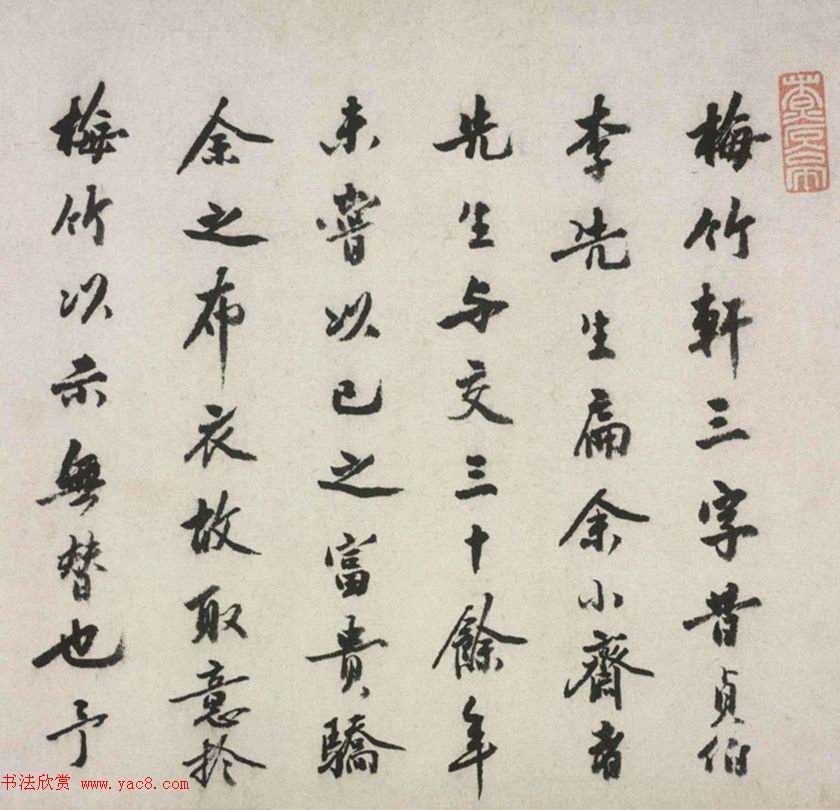 梅竹軒三字昔貞伯
李先生扁余小齋者
先生与交三十餘年
未嘗以已之富貴驕
余之布衣故取意於
梅竹以示無替也予
书法欣赏 www.yac8.com